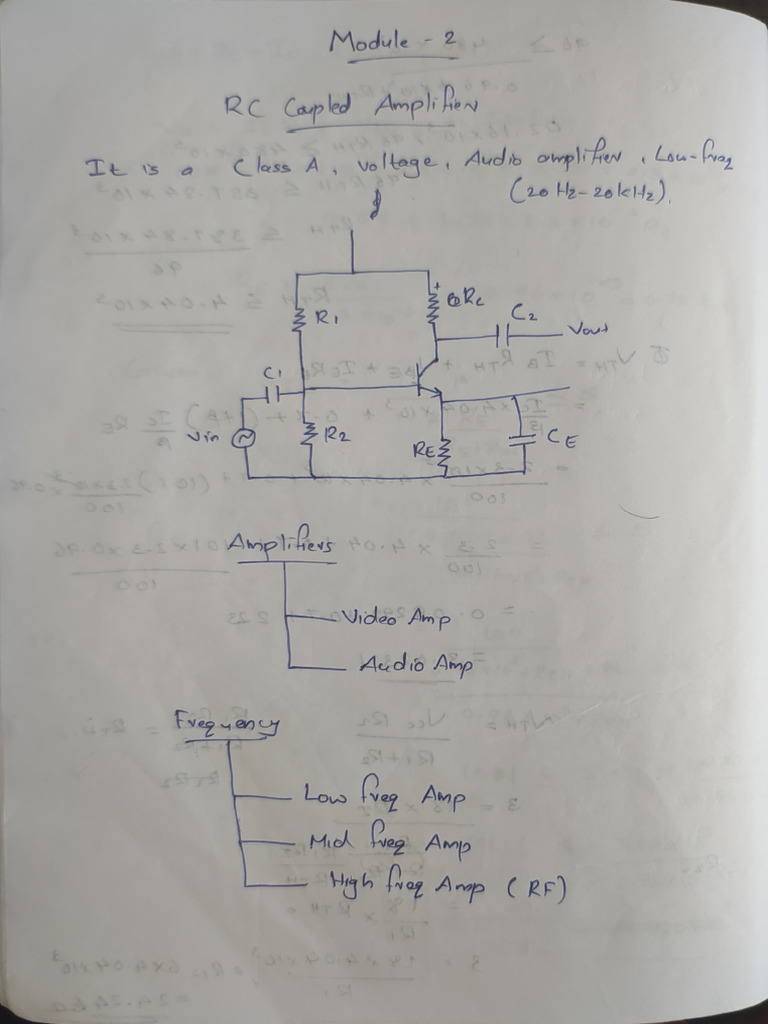 Module - 2
RC Coupled Amplifier
It is a Class A, voltage, Audio amplifier, Low-freq
(20 Hz-20kHz).
R1
RC
C2
Vout
C1
Vin
R2
RE
CE
Amplifiers
Video Amp
Audio Amp
Frequency
Low freq Amp
Mid freq Amp
High freq Amp (RF)